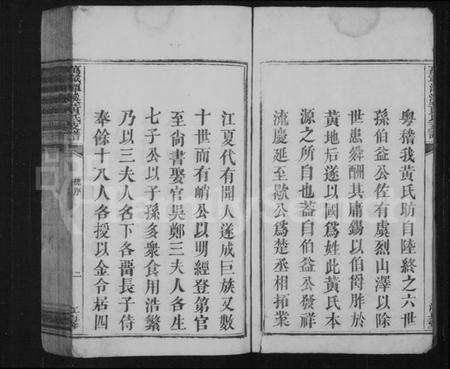 粵稽我黃氏昉自陸終之六世
孫伯益公佐有虞烈山澤以除
世患舜酬其庸錫以伯爵胙於
黃地后遂以國爲姓此黃氏本
源之所自也葢自伯益公發祥
流慶延至歇公爲楚丞相損業
江夏代有聞人遂成巨族又數
十世而有峭公以明經登第官
至尙書娶官吳鄭三夫人各生
七子公以子孫多衆食用浩繁
乃以三夫人名下各畱長子侍
奉餘十八人各授以金令居四
序
二